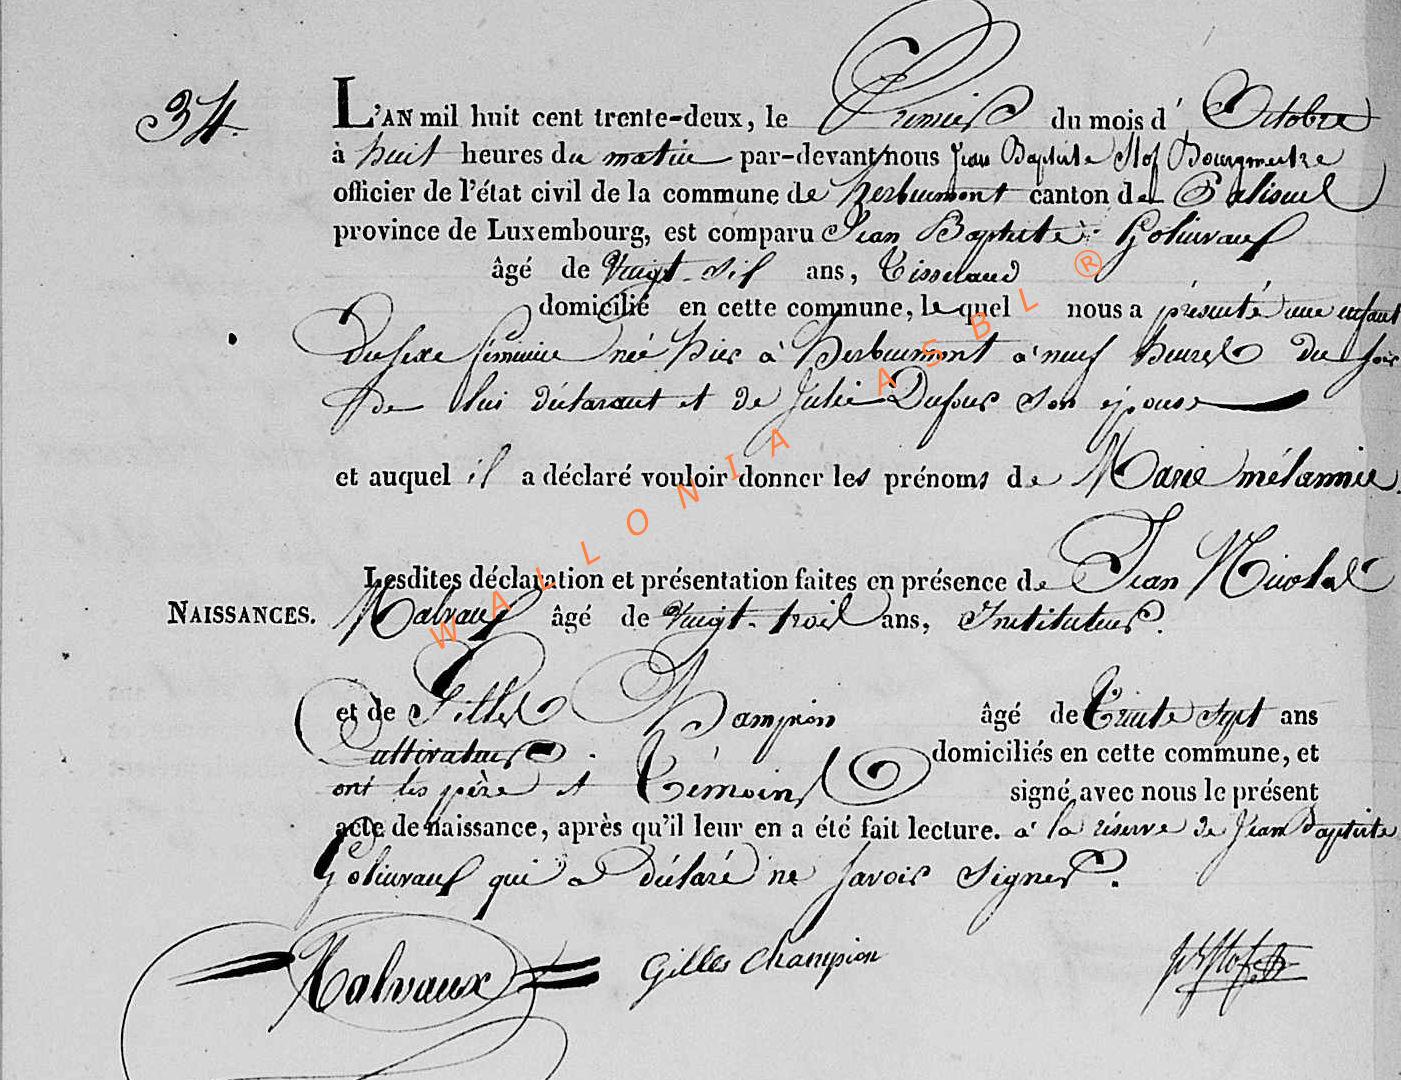 34.
L'AN mil huit cent trente-deux, le Premier du mois d' Octobre
à huit heures du matin par-devant nous Jean Baptiste Stof Bourgmestre
officier de l'état civil de la commune de herbeumont canton de Paliseul
province de Luxembourg, est comparu Jean Baptiste Goliuvaux
âgé de Vingt-six ans, Tisserand
domicilié en cette commune, lequel nous a présenté une enfant
du sexe féminin née hier à herbeumont à neuf heures du soir
de lui déclarant et de Julie Dufour son épouse
et auquel il a déclaré vouloir donner les prénoms de Marie mélannie.
Lesdites déclaration et présentation faites en présence de Jean Nicolas
NAISSANCES. Malvaux âgé de Vingt-trois ans, Instituteur.
et de Gilles Champion âgé de Trente sept ans
Cultivateur domiciliés en cette commune, et
ont les père et Témoins signé avec nous le présent
acte de naissance, après qu'il leur en a été fait lecture. à la réserve de Jean Baptiste
Goliuvaux qui a déclaré ne savoir signer.
Malvaux Gilles Champion
WALLONIA ASBL ®